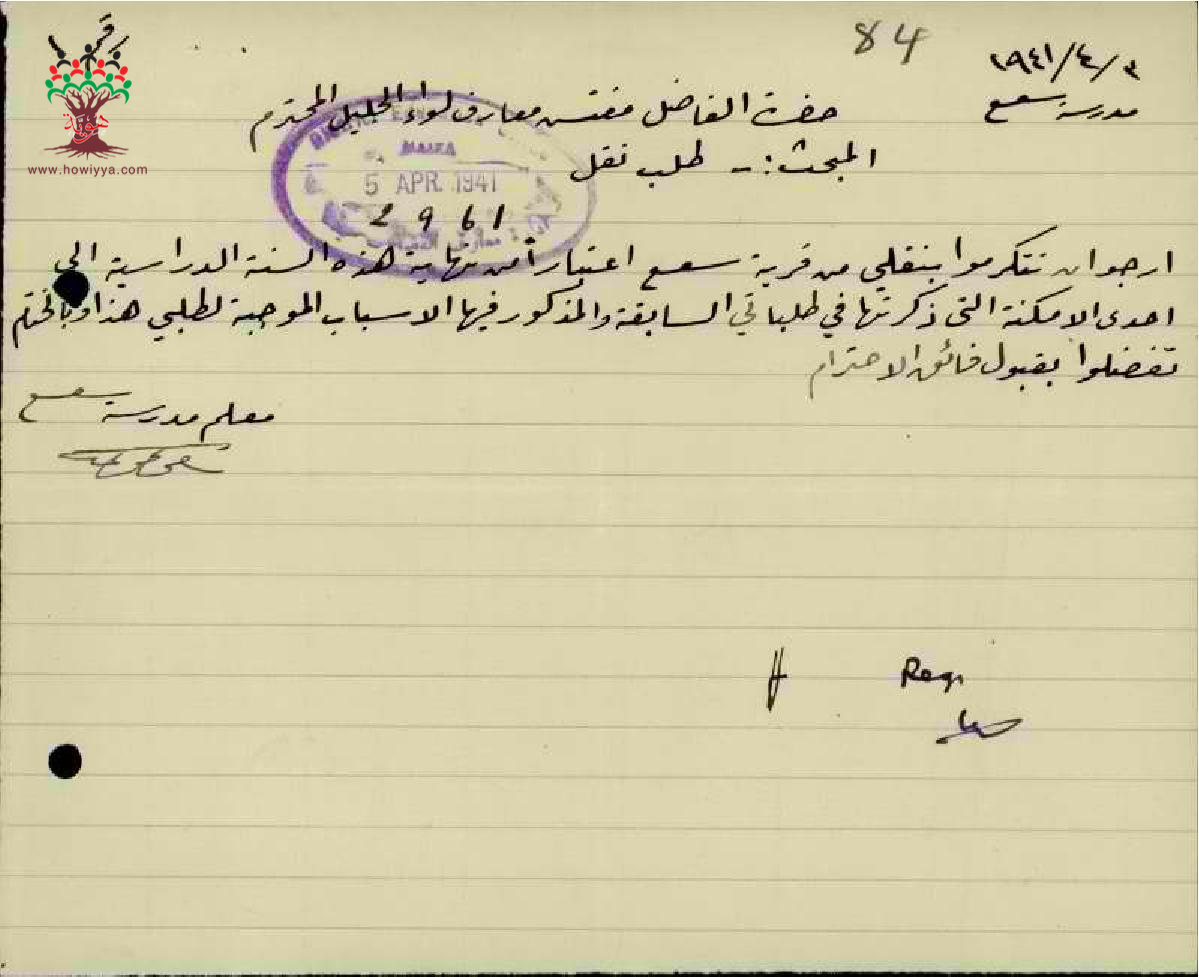 84
١٩٤١/٤/٣
مدرسة سعسع
حضرة الفاضل مفتش معارف لواء الجليل المحترم
المبحث :- طلب نقل
HAIFA
5 APR. 1941
2961
ارجو ان تتكرموا بنقلي من قرية سعسع اعتباراً من نهاية هذه السنة الدراسية الى
احدى الامكنة التى ذكرتها في طلباتي السابقة والمذكور فيها الاسباب الموجبة لطلبي هذا وبالختام
تفضلوا بقبول فائق الاحترام
معلم مدرسة سعسع
Reg.
هوية
www.howiyya.com